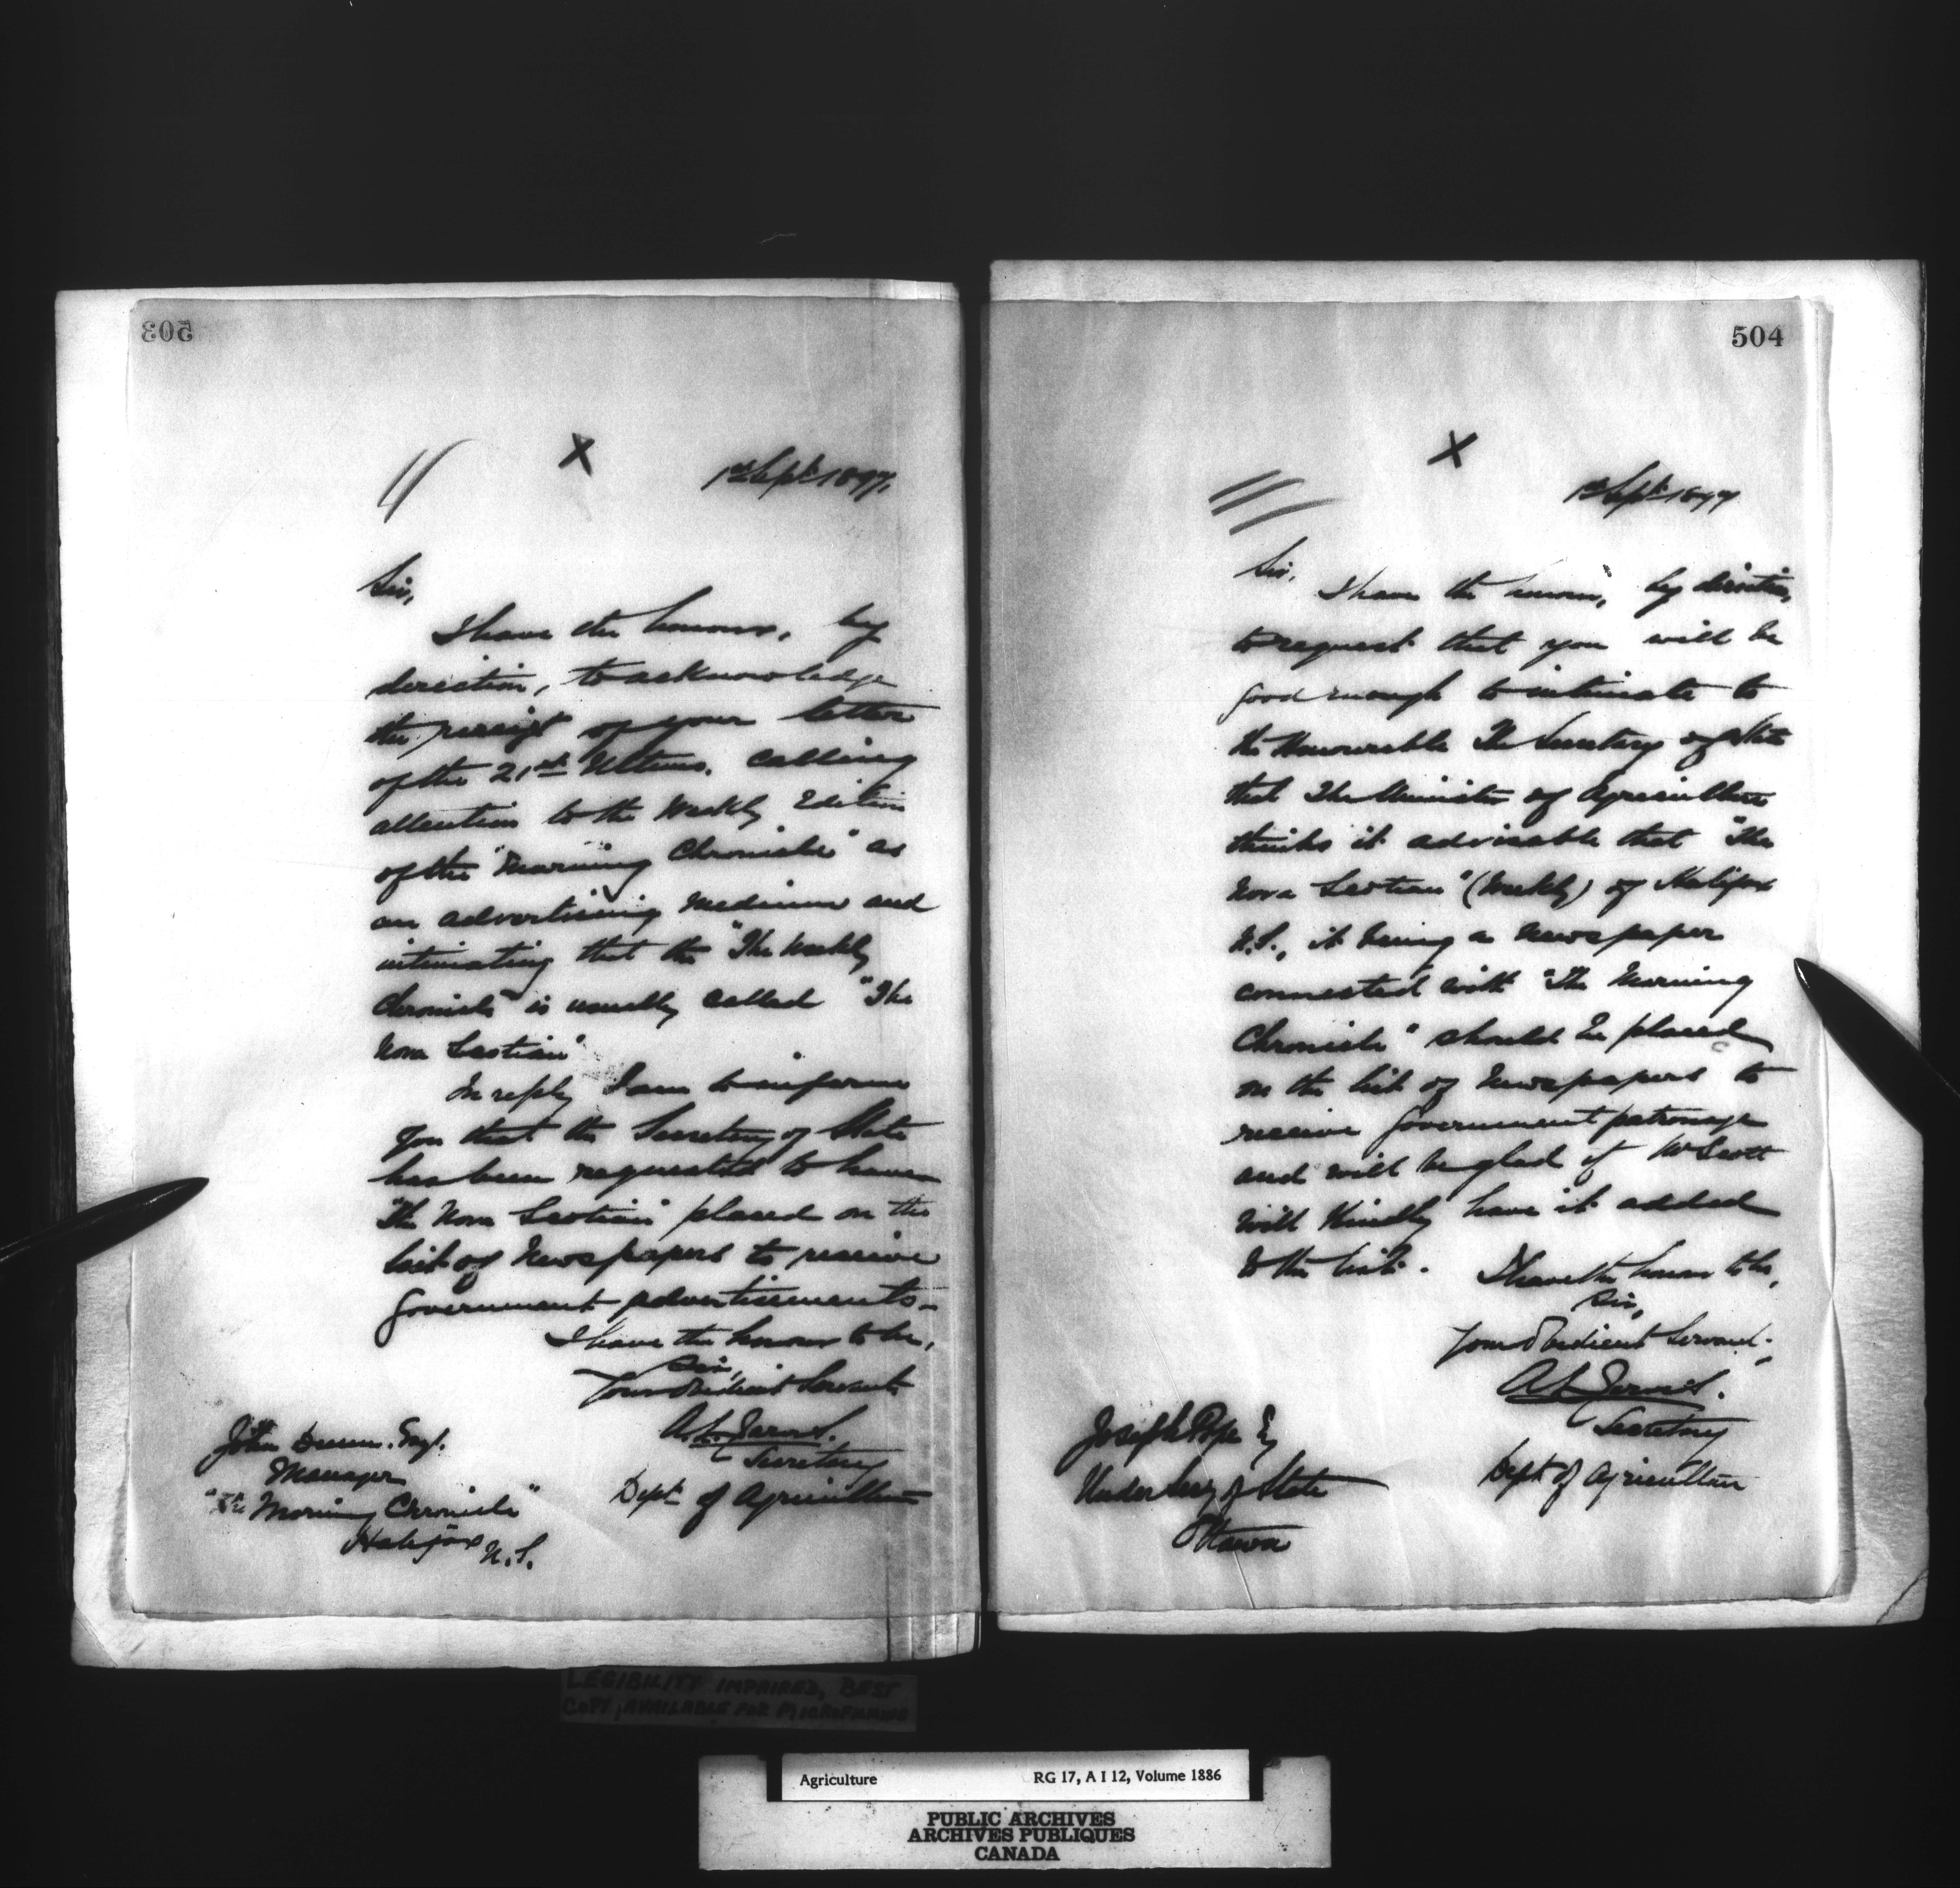 503
X
1st Sept. 1897.
Sir,
I have the honour, by
direction, to acknowledge
the receipt of your letter
of the 21st Ultimo. calling
attention to the Weekly Edition
of the "Morning Chronicle" as
an advertising medium and
intimating that the "The Weekly
Chronicle" is usually called "The
Nova Scotian"
In reply I am to inform
you that the Secretary of State
has been requested to have
"The Nova Scotian" placed on the
list of Newspapers to receive
Government advertisements.
I have the honour to be,
Sir,
Your obedient Servant
A.L. Jarvis.
Secretary
Dept. of Agriculture
John Esq.
Manager
"The Morning Chronicle"
Halifax N.S.
504
X
1st Sept. 1897
Sir,
I have the honour, by direction,
to request that you will be
good enough to intimate to
the Honourable The Secretary of State
that The Minister of Agriculture
thinks it advisable that "The
Nova Scotian" (Weekly) of Halifax
N.S., it being a newspaper
connected with "The Morning
Chronicle" should be placed
on the list of Newspapers to
receive Government patronage
and will be glad if Mr Scott
will kindly have it added
to the list.
I have the honour to be,
Sir,
Your obedient Servant,
A.L. Jarvis.
Secretary
Dept. of Agriculture
Joseph Pope Esq
Under Secy of State
Ottawa
LEGIBILITY IMPAIRED, BEST
COPY AVAILABLE FOR MICROFILMING
Agriculture RG 17, A I 12, Volume 1886
PUBLIC ARCHIVES
ARCHIVES PUBLIQUES
CANADA